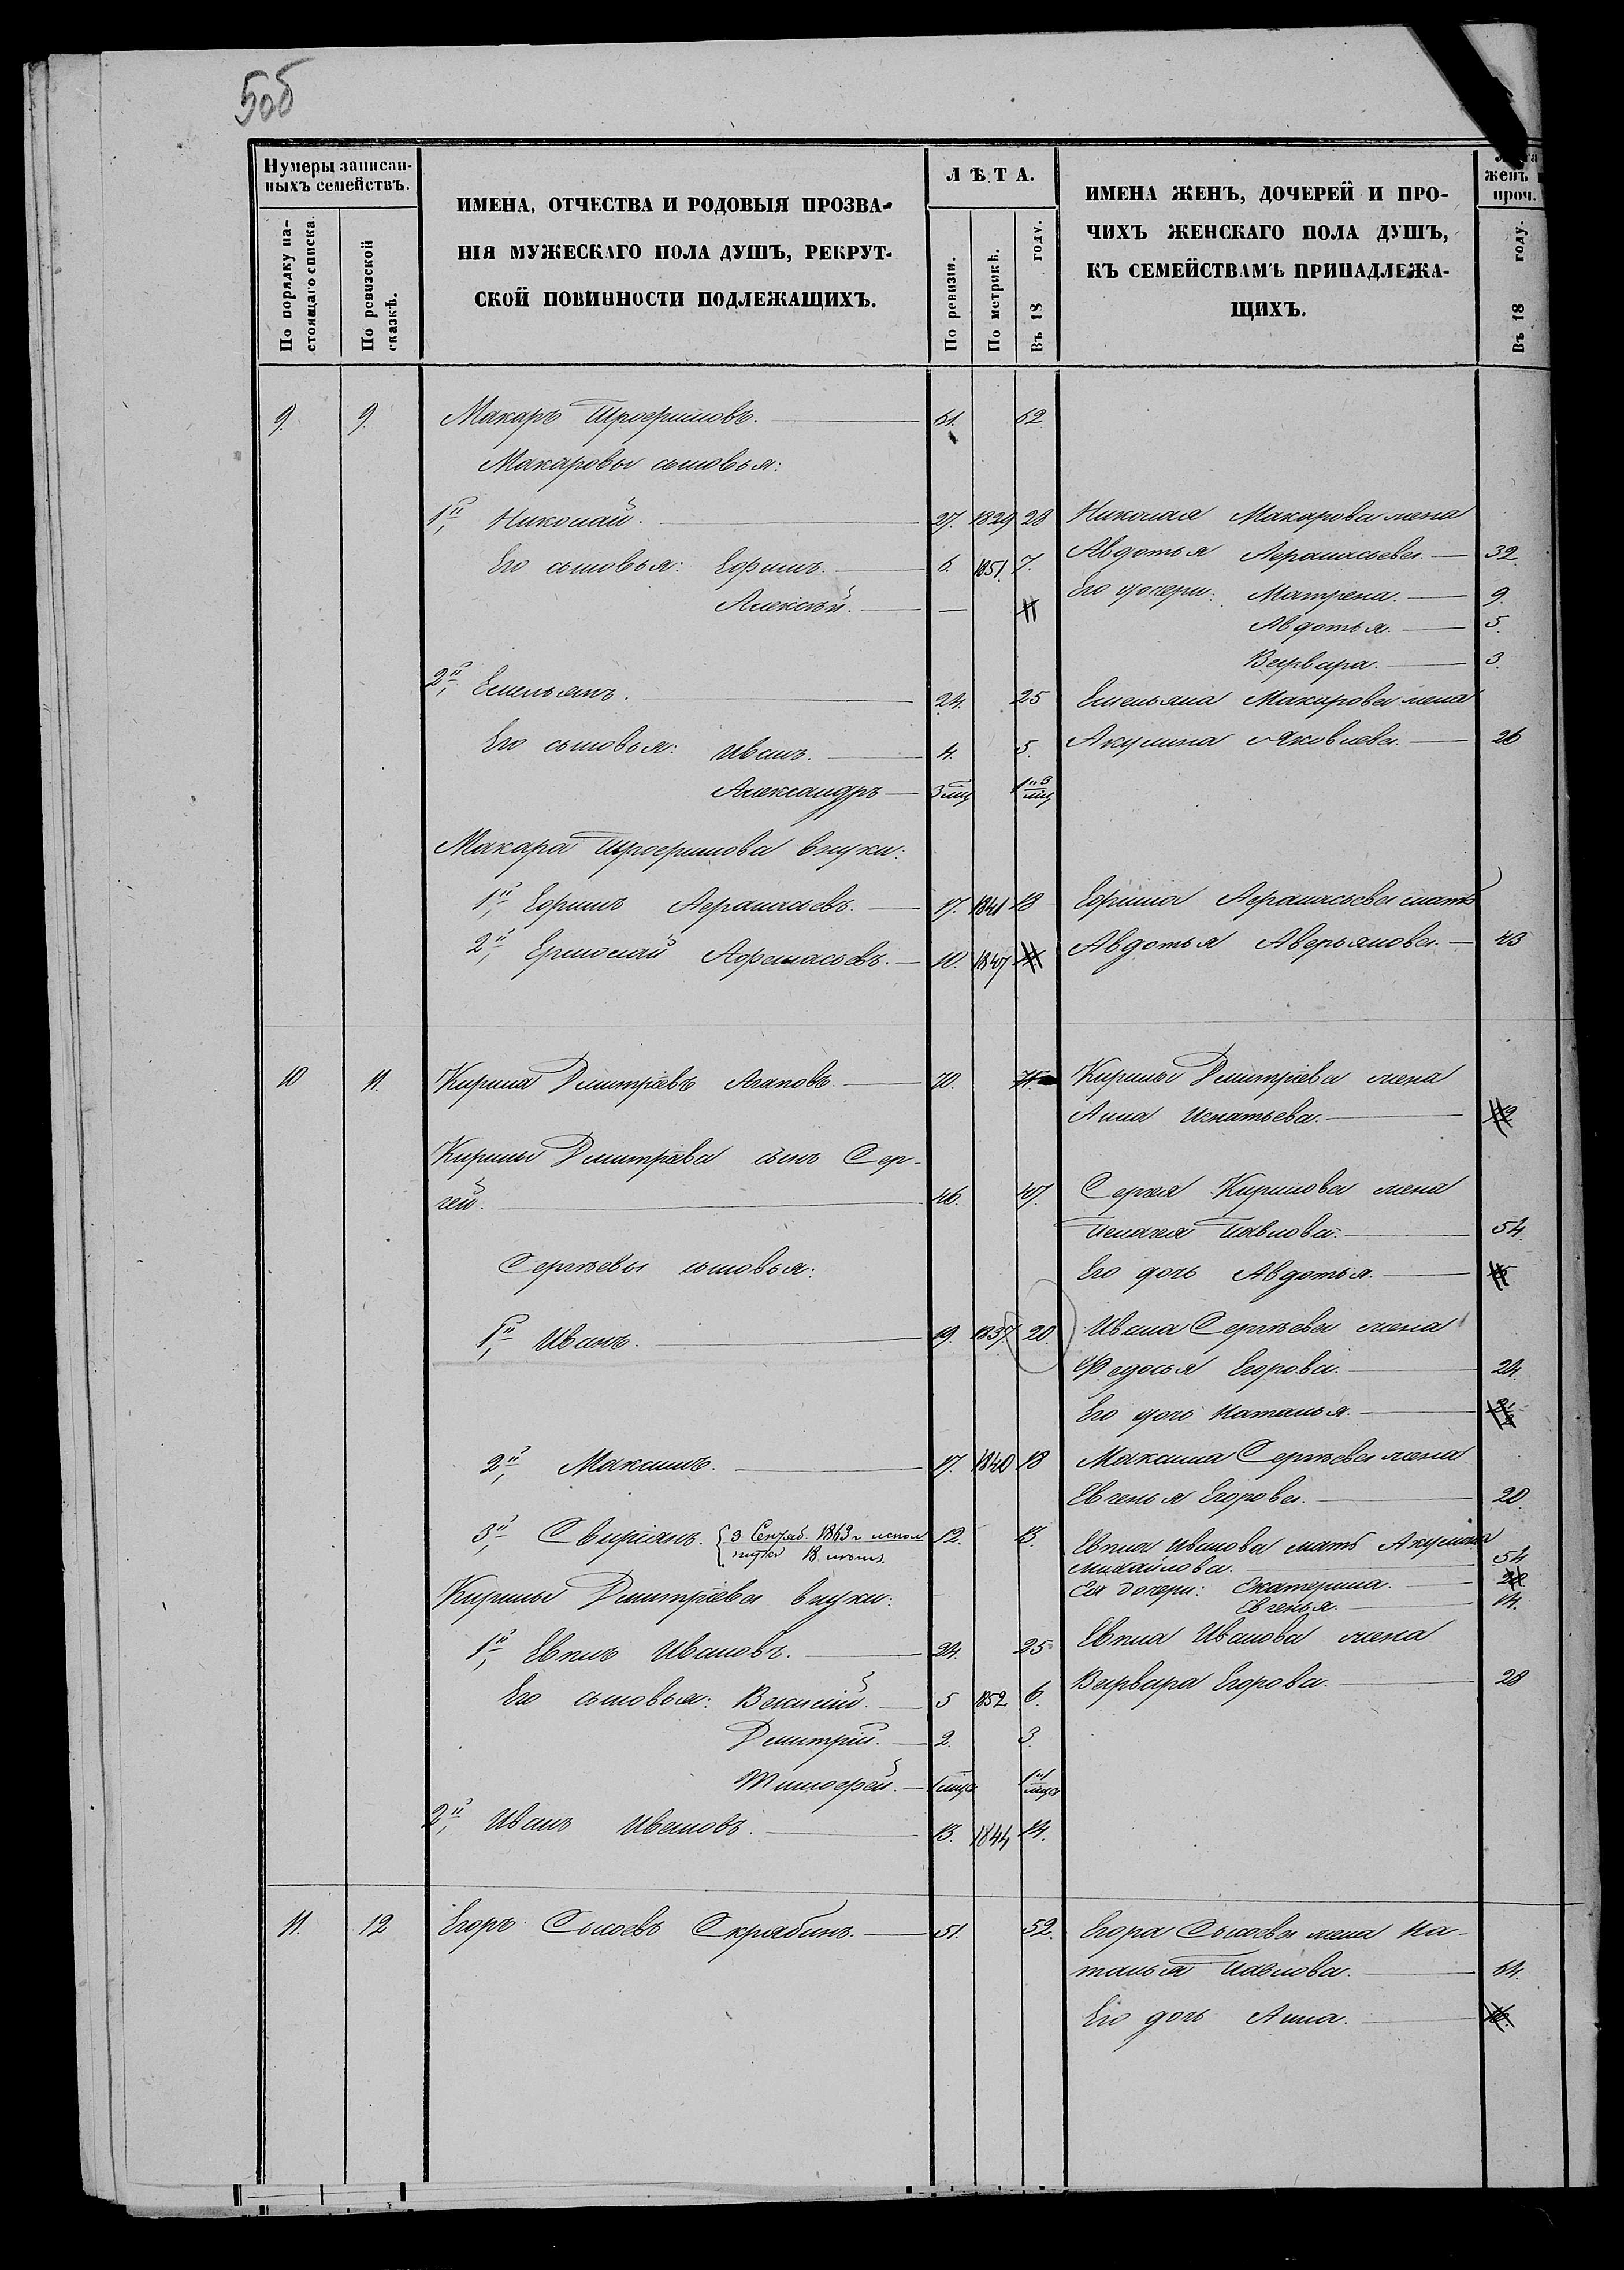 50б
Нумеры записан-
ныхъ семействъ.
По порядку на-
стоящаго списка.
По ревизской
сказкѣ.
ИМЕНА, ОТЧЕСТВА И РОДОВЫЯ ПРОЗВА-
НІЯ МУЖЕСКАГО ПОЛА ДУШЪ, РЕКРУТ-
СКОЙ ПОВИННОСТИ ПОДЛЕЖАЩИХЪ.
ЛѢТА.
По ревизіи.
По метрикѣ.
Въ 18 году.
ИМЕНА ЖЕНЪ, ДОЧЕРЕЙ И ПРО-
ЧИХЪ ЖЕНСКАГО ПОЛА ДУШЪ,
КЪ СЕМЕЙСТВАМЪ ПРИНАДЛЕЖА-
ЩИХЪ.
женъ
проч.
Въ 18 году.
9. 9. Макаръ Трофимовъ. 61. 62
Макаровы сыновья:
1й, Николай. 27. 1829 28
Его сыновья: Ефимъ. 6. 1851. 7.
Алексѣй. —
2й, Емельянъ. 24. 25
Его сыновья: Иванъ. 4. 5.
Александръ 3 мц
Макара Трофимова внуки:
1й, Ефимъ Афанасьевъ. 17. 1841 18
2й, Ермолай Афанасьевъ. 10. 1847
Николая Макарова жена
Авдотья Афанасьева. 32.
Его дочери: Матрена. 9.
Авдотья. 5.
Варвара. 3.
Емельяна Макарова жена
Акулина Яковлева. 26
Ефима Афанасьева мать
Авдотья Аверьянова. 43
10 11. Кирила Дмитріевъ Агаповъ. 70. 71.
Кирилы Дмитріева сынъ Сер-
гей. 46. 47.
Сергѣевы сыновья:
1й, Иванъ. 19. 1837 20.
2й, Максимъ. 17. 1840 18
3й, Свиріянъ. 3 Сентяб. 1863 г испол 12. 13.
18 лѣтъ.
Кирилы Дмитріева внуки:
1й, Евплъ Ивановъ. 24. 25
Его сыновья: Василій. 5 1852 6.
Дмитрій. 2. 3.
Тимофей. 1 мцъ
2й, Иванъ Ивановъ. 13. 1844 14.
Кирилы Дмитріева жена
Анна Игнатьева.
Сергея Кирилова жена
Пелагея Павлова. 54.
Его дочь Авдотья.
Ивана Сергѣева жена
Федосья Егорова. 24.
Его дочь Наталья.
Максима Сергѣева жена
Евгенья Егорова. 20.
Евпла Иванова мать Акулина
Михайлова. 54
Ея дочери: Екатерина.
Евгенья. 14.
Евпла Иванова жена
Варвара Егорова. 28
11. 12 Егоръ Сысоевъ Скрябинъ. 51. 52.
Егора Сысоева жена На-
талья Павлова. 54.
Его дочь Анна. 16.